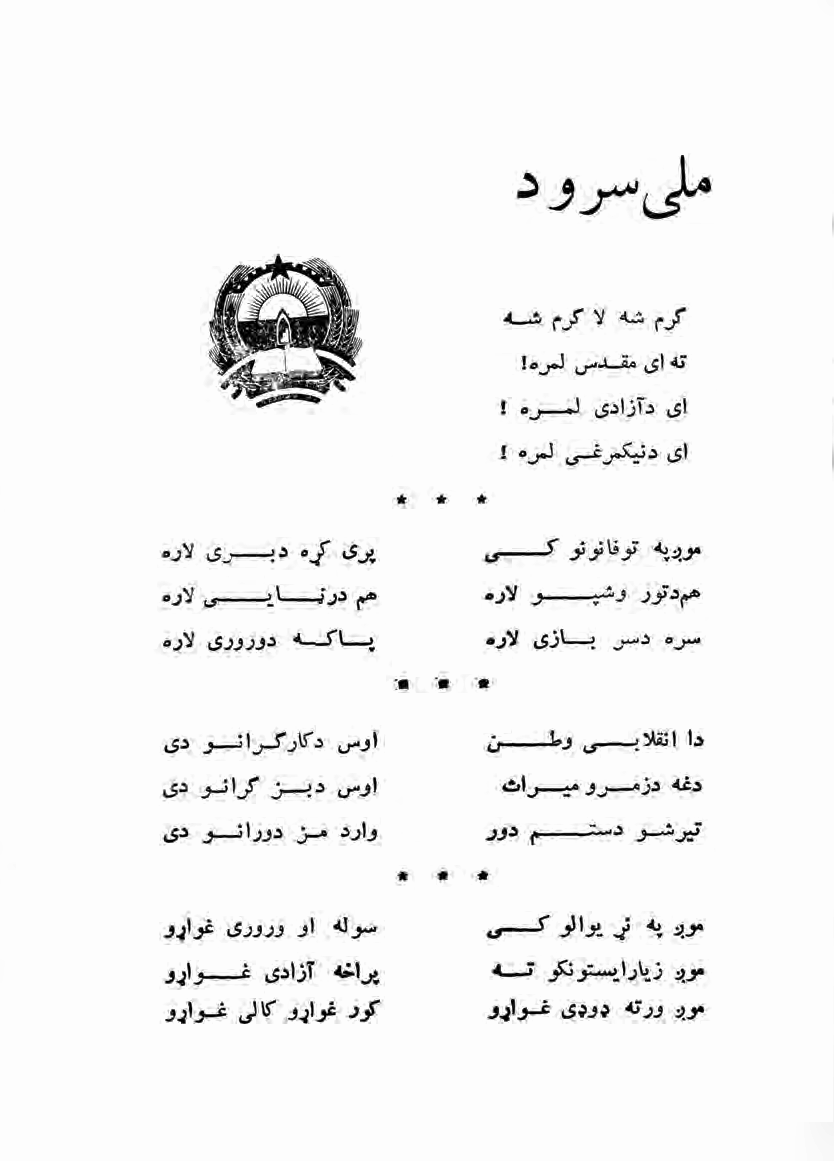 ملی سرود
گرم شه لا گرم شه
ته ای مقدس لمره!
ای دآزادی لمره !
ای دنیکمرغی لمره !
* * *
موږپه توفانونو کی پری کړه دبری لاره
هم دتور وشپو لاره هم درڼایی لاره
سره دسر بازی لاره پاکه دوروری لاره
* * *
دا انقلابی وطن اوس دکارګرانو دی
دغه دزمرو میراث اوس دبز ګرانو دی
تیرشو دستم دور وارد مز دورانو دی
* * *
موږ په نړ یوالو کی سوله او وروری غواړو
موږ زیارایستونکو ته پراخه آزادی غواړو
موږ ورته ډوډی غواړو کور غواړو کالی غواړو